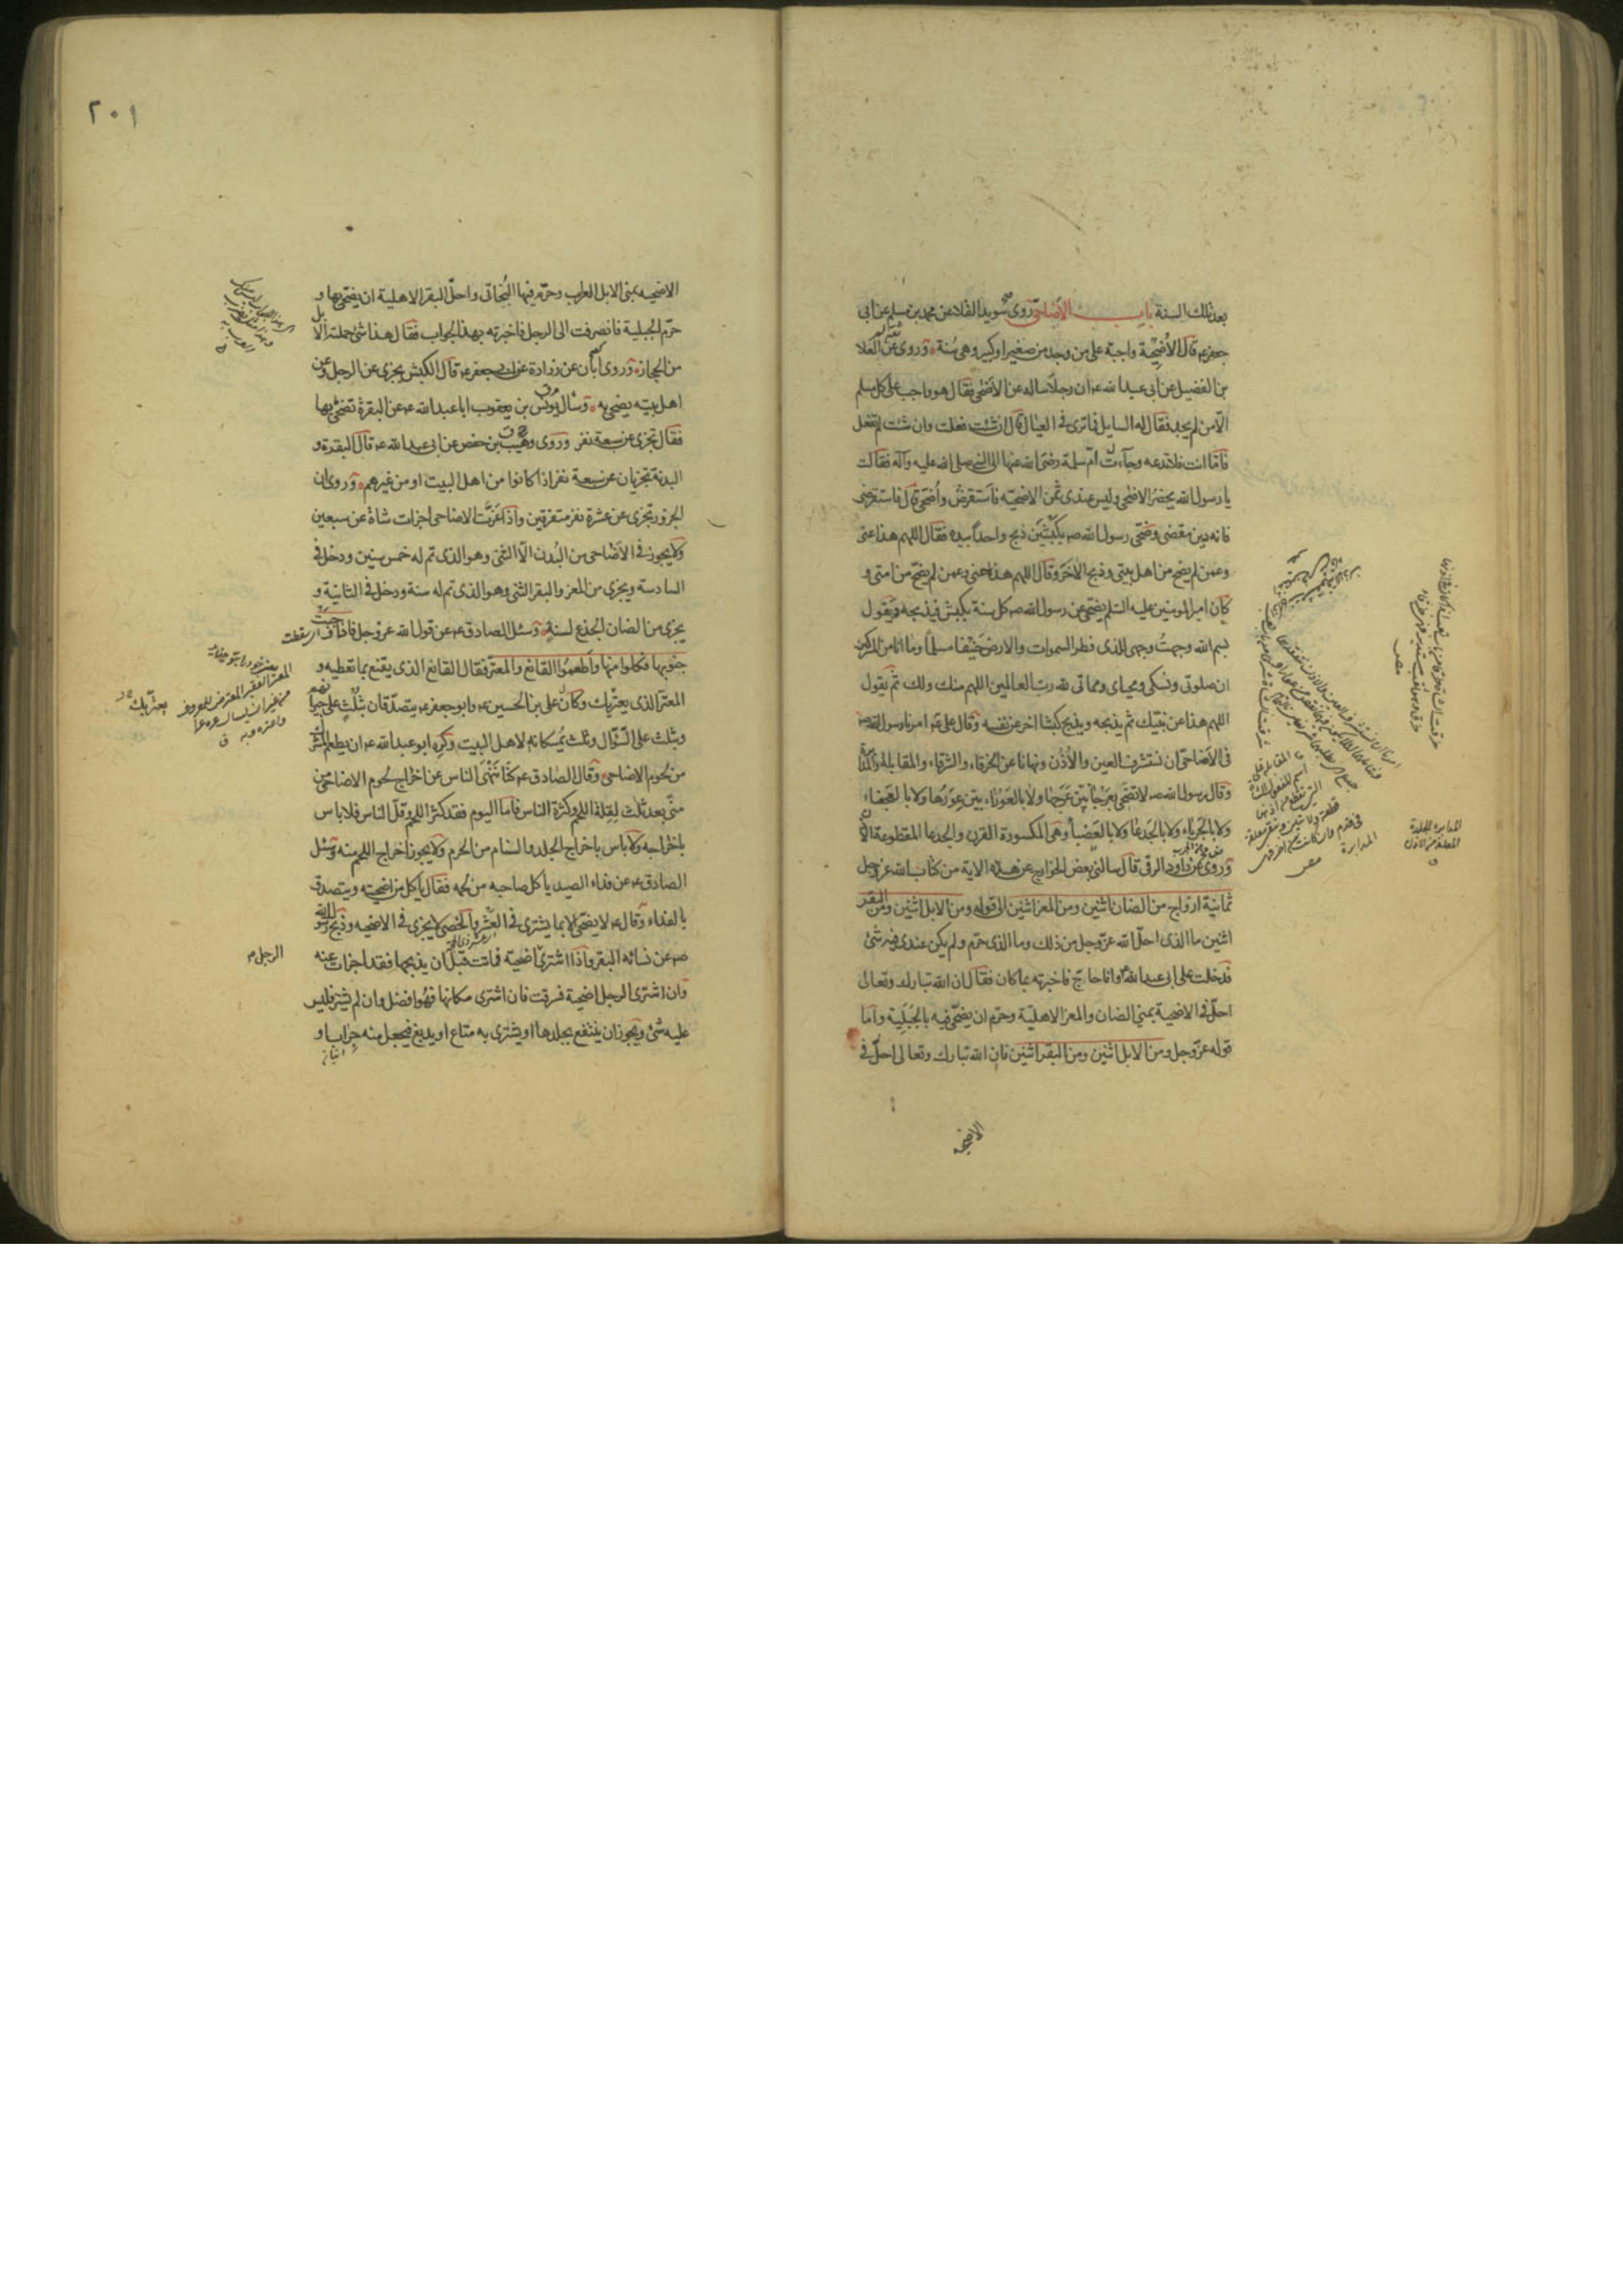 بعد تلك السنة باب الأضاحي روى سويد القلا عن محمد بن مسلم عن ابى
جعفر ع قال الأضحية واجبة على من وجد من صغير او كبير وهى سنة وروى عن العلا
بن الفضيل عن ابى عبد الله ع ان رجلا ساله عن الاضحى فقال هو واجب على كل مسلم
الا من لم يجد فقال له السايل فما ترى فى العيال قال ان شئت فعلت وان شئت لم تفعل
فاما انت فلا تدعه وجاءت ام سلمة رضى الله عنها الى النبى صلى الله عليه وآله فقالت
يا رسول الله يحضر الاضحى وليس عندى ثمن الاضحية فاستقرض واضحى قال فاستقرضى
فانه دين مقضى وضحى رسول الله ص بكبشين ذبح واحدا بيده فقال اللهم هذا عنى
وعمن لم يضح من اهل بيتى وذبح الاخر وقال اللهم هذا عنى وعمن لم يضح من امتى و
كان امير المومنين عليه السلم يضحى عن رسول الله ص كل سنة بكبش فيذبحه ويقول
بسم الله وجهت وجهى للذى فطر السموات والارض حنيفا مسلما وما انا من المشركين
ان صلوتى ونسكى ومحياى ومماتى لله رب العالمين اللهم منك ولك ثم يقول
اللهم هذا عن نبيك ثم يذبحه ويذبح كبشا اخر عن نفسه وقال على ع امرنا رسول الله ص
فى الاضاحى ان نستشرف العين والأذن ونهانا عن الخرقاء والشرقاء والمقابلة والمدابرة
وقال رسول الله ص لا تضحى بعرجاء بين عرجها ولا بالعوراء بين عورها ولا بالعجفاء
ولا بالجرباء ولا بالجدعا ولا بالعضباء وهى المكسورة القرن والجدعا المقطوعة الاذن
وروى عن داود الرقى قال سالنى بعض الخوارج عن هذه الاية من كتاب الله عز وجل
ثمانية ازواج من الضان اثنين ومن المعز اثنين الى قوله ومن الابل اثنين ومن البقر
اثنين ما الذى احل الله عز وجل من ذلك وما الذى حرم ولم يكن عندى فيه شئ
فدخلت على ابى عبد الله ع وانا حاج فاخبرته بما كان فقال ان الله تبارك وتعالى
احل فى الاضحية بمنى الضان والمعز الاهلية وحرم ان يضحى فيه بالجبلية واما
قوله عز وجل ومن الابل اثنين ومن البقر اثنين فان الله تبارك وتعالى احل فى
الاضحية
٢٠١
الاضحية بمنى الابل العراب وحرم فيها البخاتى واحل البقر الاهلية ان يضحى بها و
حرم الجبلية فانصرفت الى الرجل فاخبرته بهذا الجواب فقال هذا شئ حملته الابل
من الحجاز وروى ابان عن زرارة عن ابى جعفر ع قال الكبش يجزى عن الرجل وعن
اهل بيته يضحى به وسأل يونس بن يعقوب ابا عبد الله ع عن البقرة تضحى بها
فقال تجزى عن سبعة نفر وروى وهيب بن حفص عن ابى عبد الله ع قال البقرة و
البدنة تجزيان عن سبعة نفر اذا كانوا من اهل البيت او من غيرهم وروى ان
الجزور تجزى عن عشرة نفر متفرقين واذا عزت الاضاحى اجزات شاة عن سبعين
ولا يجوز فى الاضاحى من البدن الا الثنى وهو الذى تم له خمس سنين ودخل فى
السادسة ويجزى من المعز والبقر الثنى وهو الذى تم له سنة ودخل فى الثانية و
يجزى من الضان الجذع لسنة وسئل الصادق ع عن قول الله عز وجل فاذا وجبت
جنوبها فكلوا منها واطعموا القانع والمعتر فقال القانع الذى يقنع بما تعطيه و
المعتر الذى يعتريك وكان على بن الحسين ع وابو جعفر ع يتصدقان بثلث على جيرانهم
وبثلث على السؤال وثلث يمسكانه لاهل البيت وكره ابو عبد الله ع ان يطعم المشرك
من لحوم الاضاحى وقال الصادق ع كنا ننهى الناس عن اخراج لحوم الاضاحى من
منى بعد ثلث لقلة اللحم وكثرة الناس فاما اليوم فقد كثر اللحم وقل الناس فلا باس
باخراجه ولا باس باخراج الجلد والسنام من الحرم ولا يجوز اخراج اللحم منه وسئل
الصادق ع عن فداء الصيد ياكل صاحبه من لحمه فقال ياكل من اضحيته ويتصدق
بالفداء وقال ع لا يضحى الا بما يشترى فى العشر والخصى لا يجزى فى الاضحية وذبح رسول الله
ص عن نسائه البقر واذا اشترى اضحية فماتت قبل ان يذبحها فقد اجزات عنه
الرجل
وان اشترى الرجل اضحية فسرقت فان اشترى مكانها فهو افضل وان لم يشتر فليس
عليه شئ ويجوز ان ينتفع بجلدها او يشترى به متاع او يدبغ فيجعل منه جراب او